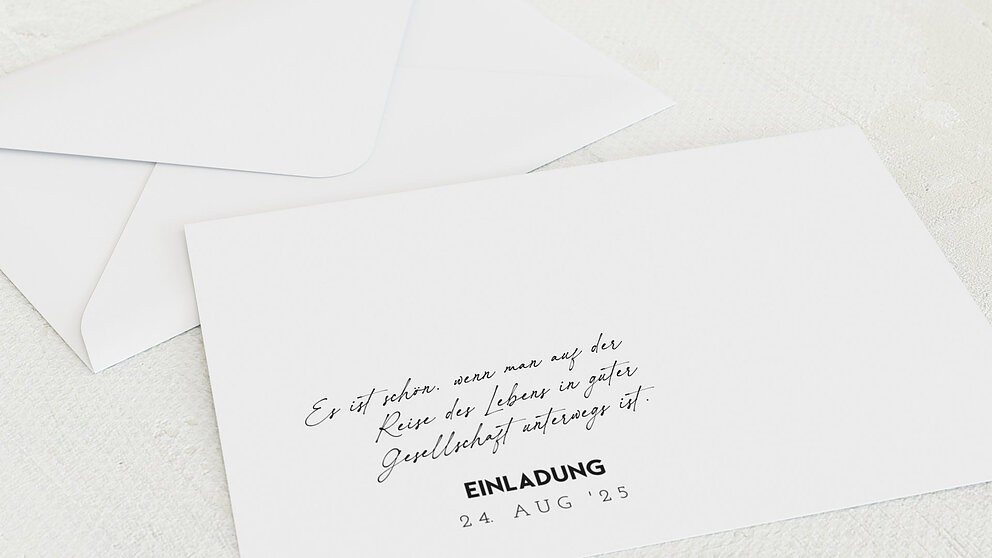 Es ist schön, wenn man auf der
Reise des Lebens in guter
Gesellschaft unterwegs ist.
EINLADUNG
24. AUG '25